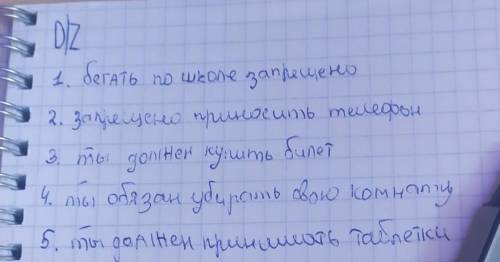 D/Z
1. бегать по школе запрещено
2. запрещено приносить телефон
3. ты должен купить билет
4. ты обязан убирать свою комнату
5. ты должен принимать таблетки